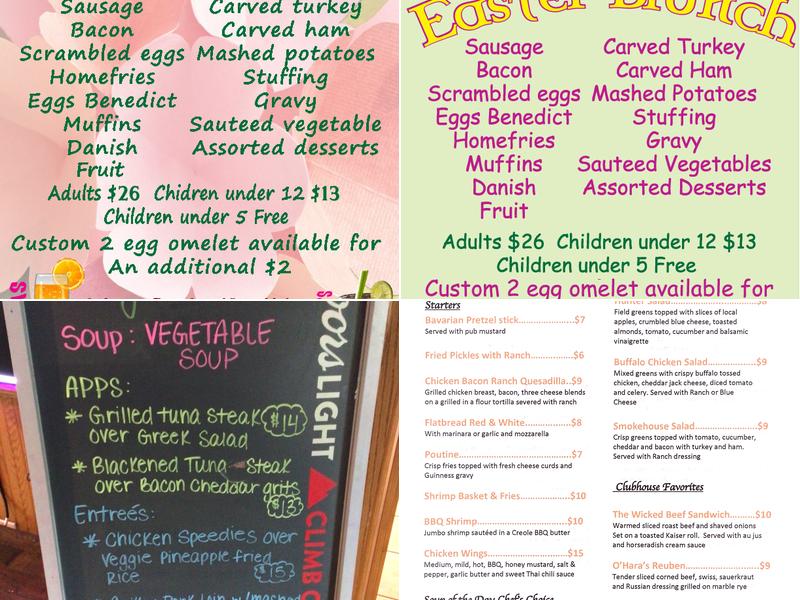 Sausage Carved turkey
Bacon Carved ham
Scrambled eggs Mashed potatoes
Homefries Stuffing
Eggs Benedict Gravy
Muffins Sauteed vegetable
Danish Assorted desserts
Fruit
Adults $26 Chidren under 12 $13
Children under 5 Free
Custom 2 egg omelet available for
An additional $2
Easter Brunch
Sausage Carved Turkey
Bacon Carved Ham
Scrambled eggs Mashed Potatoes
Eggs Benedict Stuffing
Homefries Gravy
Muffins Sauteed Vegetables
Danish Assorted Desserts
Fruit
Adults $26 Children under 12 $13
Children under 5 Free
Custom 2 egg omelet available for
Soup: VEGETABLE
SOUP
APPS:
* Grilled tuna steak $14
over Greek Salad
* Blackened Tuna steak
over Bacon Cheddar grits
$13
Entreés:
* Chicken Speedies over
Veggie Pineapple fried
Rice $15
LIGHT
CLIMB
Starters
Bavarian Pretzel stick......................$7
Served with pub mustard
Fried Pickles with Ranch...............$6
Chicken Bacon Ranch Quesadilla..$9
Grilled chicken breast, bacon, three cheese blends
on a grilled in a flour tortilla severed with ranch
Flatbread Red & White.................$8
With marinara or garlic and mozzarella
Poutine.........................................$7
Crisp fries topped with fresh cheese curds and
Guinness gravy
Shrimp Basket & Fries.................$10
BBQ Shrimp.................................$10
Jumbo shrimp sautéed in a Creole BBQ butter
Chicken Wings............................$15
Medium, mild, hot, BBQ, honey mustard, salt &
pepper, garlic butter and sweet Thai chili sauce
Soup of the Day Chef's Choice
Hunter Salad
Field greens topped with slices of local
apples, crumbled blue cheese, toasted
almonds, tomato, cucumber and balsamic
vinaigrette
Buffalo Chicken Salad..................$9
Mixed greens with crispy buffalo tossed
chicken, cheddar jack cheese, diced tomato
and celery. Served with Ranch or Blue
Cheese
Smokehouse Salad.......................$9
Crisp greens topped with tomato, cucumber,
cheddar and bacon with turkey and ham.
Served with Ranch dressing
Clubhouse Favorites
The Wicked Beef Sandwich.........$10
Warmed sliced roast beef and shaved onions
Set on a toasted Kaiser roll. Served with au jus
and horseradish cream sauce
O'Hara's Reuben..........................$9
Tender sliced corned beef, swiss, sauerkraut
and Russian dressing grilled on marble rye